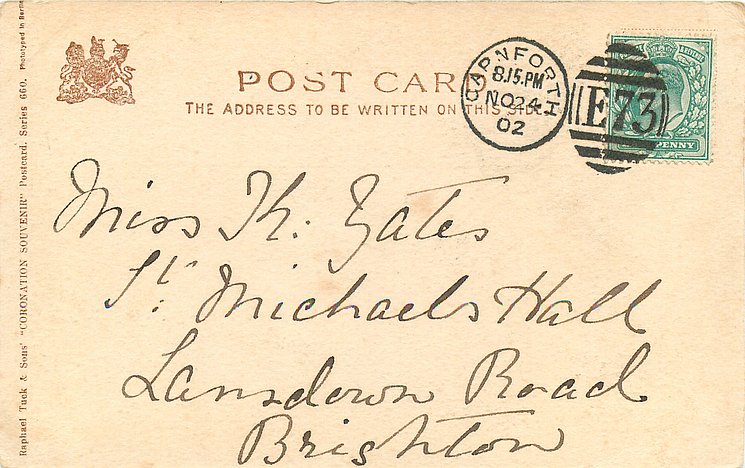 POST CARD
THE ADDRESS TO BE WRITTEN ON THIS SIDE
CARNFORTH
8.15.PM
NO 24
02
E73
PENNY
Miss K. Yates
St. Michaels Hall
Lansdown Road
Brighton
Raphael Tuck & Sons' "CORONATION SOUVENIR" Postcard. Series 660. Phototyped in Berlin